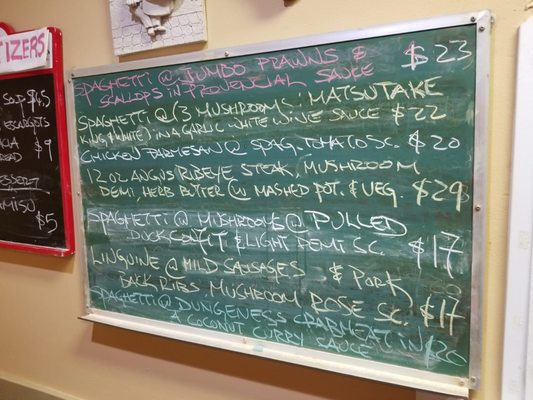 TIZERS
SOUP $4.5
ESCARGOTS
$9
READ
$5
SPAGHETTI @ JUMBO PRAWNS & $23
SCALLOPS IN PROVENCIAL SAUCE
SPAGHETTI @ (3 MUSHROOMS: MATSUTAKE
KING & WHITE) IN A GARLIC WHITE WINE SAUCE $22
CHICKEN PARMESAN @ SPAG. TOMATO SC. $20
12 OZ ANGUS RIBEYE STEAK, MUSHROOM
DEMI, HERB BUTTER @ MASHED POT. & VEG $29
SPAGHETTI @ MUSHROOMS @ PULLED
DUCK CONFIT & LIGHT DEMI SC. $17
LINGUINE @ MILD SAUSAGES & PORK
BACK RIBS MUSHROOM ROSE SC. $17
SPAGHETTI @ DUNGENESS CRABMEAT IN
A COCONUT CURRY SAUCE $20